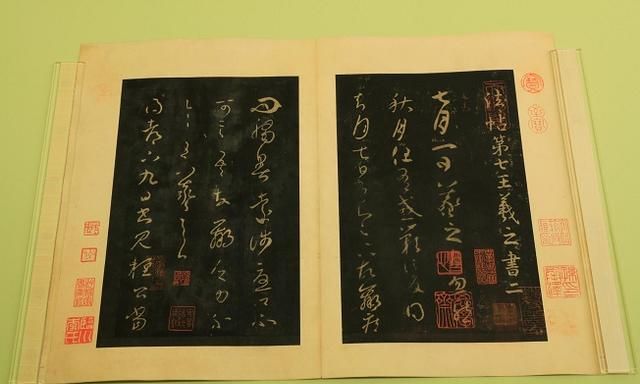 法帖第七 王羲之書二
七月一日羲之白忽然
秋月但有感歎信反得
去月七日書知足下故羸疾
問觸暑遠涉憂卿不
可言吾故羸乏力不
具王羲之白
得都下九日書見桓公當